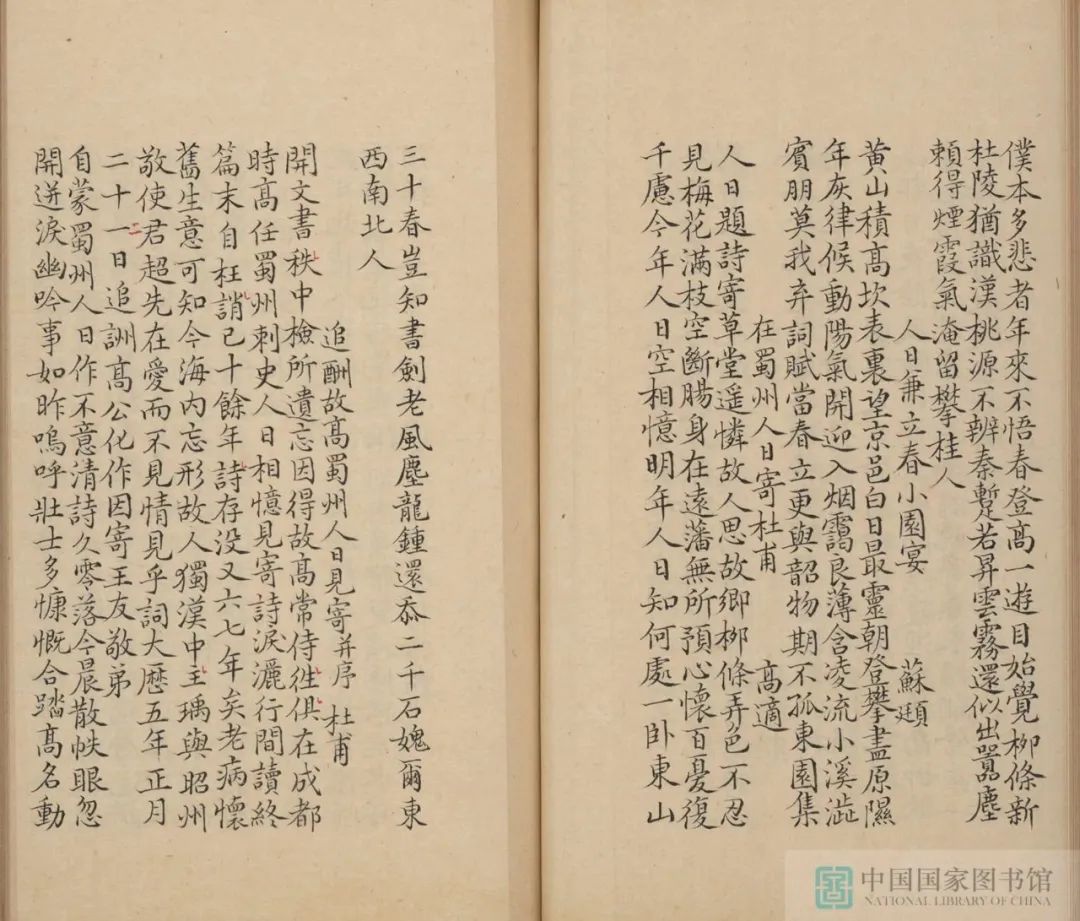 僕本多悲者年來不悟春登高一遊目始覺柳條新
杜陵猶識漢桃源不辨秦暫若昇雲霧還似出嚣塵
賴得煙霞氣淹留攀桂人
人日兼立春小園宴 蘇頲
黄山積高坎表裏望京邑白日最靈朝登攀盡原隰
年灰律候動陽氣開迎入烟靄良薄含凌流小溪澁
賓朋莫我弃詞賦當春立更與韶物期不孤東園集
在蜀州人日寄杜甫 高適
人日題詩寄草堂遥憐故人思故鄉柳條弄色不忍
見梅花滿枝空斷腸身在遠藩無所預心懷百憂復
千慮今年人日空相憶明年人日知何處一卧東山
三十春豈知書劍老風塵龍鍾還忝二千石媿爾東
西南北人
追酬故髙蜀州人日見寄并序 杜甫
開文書秩中檢所遺忘因得故髙常侍徃俱在成都
時髙任蜀州刺史人日相憶見寄詩淚灑行間讀終
篇末自枉誚已十餘年詩存没又六七年矣老病懷
舊生意可知今海内忘形故人獨漢中主瑀與昭州
敬使君超先在愛而不見情見乎詞大歷五年正月
二十一日追訓髙公化作因寄王友敬弟
自蒙蜀州人日作不意清詩久零落今晨散帙眼忽
開迸淚幽吟事如昨嗚呼壯士多慷慨合踏髙名動
中国国家图书馆
NATIONAL LIBRARY OF CHINA